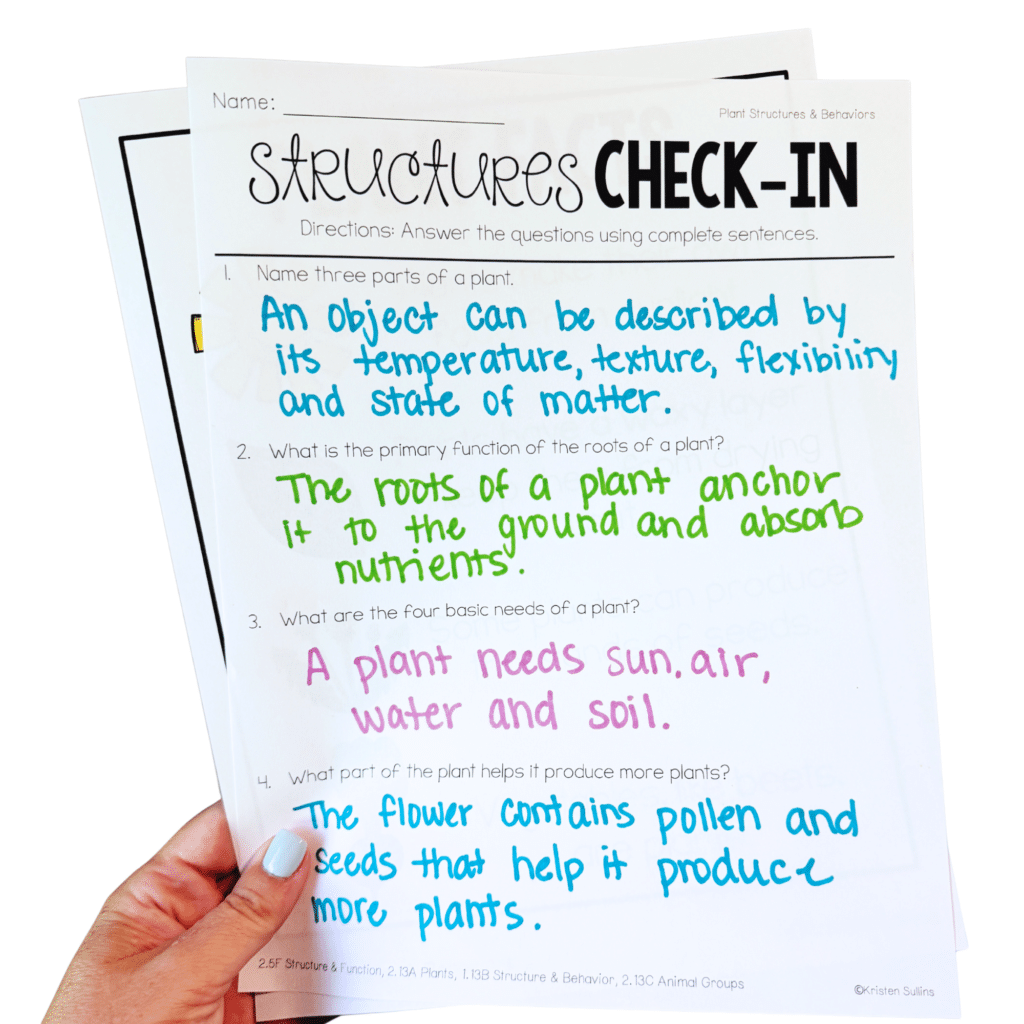 Name:
Plant Structures & Behaviors
Structures CHECK-IN
Directions: Answer the questions using complete sentences.
1. Name three parts of a plant.
An object can be described by
its temperature, texture, flexibility
and state of matter.
2. What is the primary function of the roots of a plant?
The roots of a plant anchor
it to the ground and absorb
nutrients.
3. What are the four basic needs of a plant?
A plant needs sun, air,
water and soil.
4. What part of the plant helps it produce more plants?
The flower contains pollen and
seeds that help it produce
more plants.
2.5F Structure & Function, 2.13A Plants, 1.13B Structure & Behavior, 2.13C Animal Groups
©Kristen Sullins